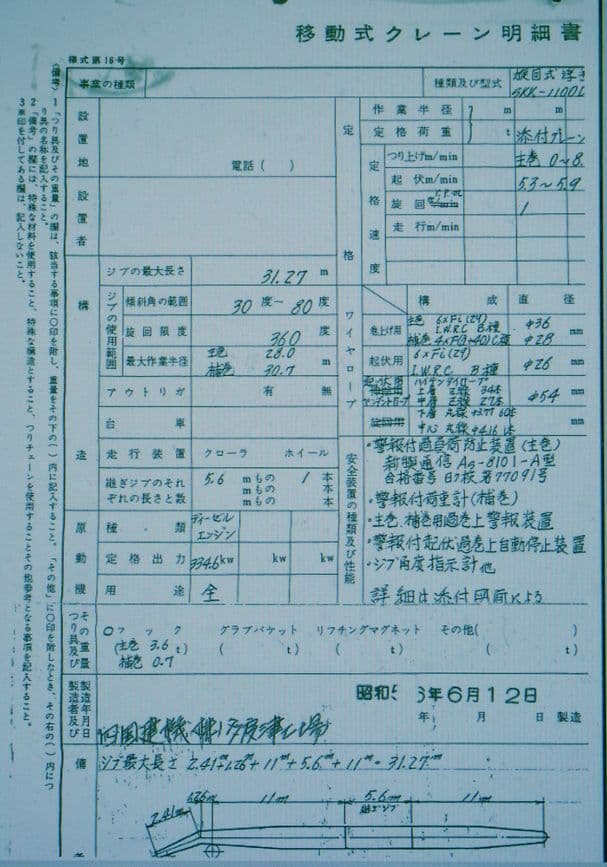 移動式クレーン明細書
様式第16号
事業の種類
種類及び型式
旋回式浮き
SKK-1100D
設置地
電話( )
設置者
定格
作業半径 m m
定格荷重 t 添付クレーン
定格速度
つり上げm/min 主巻 0~8.
起伏m/min 5.3~5.9
旋回 r.p.m. 1
走行m/min
構造
ジブの最大長さ 31.27 m
ジブの使用範囲
傾斜角の範囲 30 度~ 80 度
旋回限度 360 度
最大作業半径 主巻 28.0 m
補巻 30.7 m
アウトリガ 有 無
台車
走行装置 クローラ ホイール
継ぎジブのそれぞれの長さと数
5.6 mもの 1 本
mもの 本
mもの 本
ワイヤロープ
構成 直径
巻上げ用 主巻 6×Fi(29) I.W.R.C B種 φ36 mm
補巻 4×F(a+40)C種 φ28
起伏用 6×Fi(29) I.W.R.C B種 φ26 mm
起伏用 ペンダントロープ ハイテンデイロープ
上層 Z線 34本
中層 Z線 27本
φ54 mm
旋回用 下層 丸線 φ3.77 60本
中心 丸線 φ4.16 1本
mm
安全装置の種類及び性能
・警報付過負荷防止装置(主巻)
新興通信 AS-8101-A型
合格番号 B7検第77091号
・警報付荷重計(補巻)
・主巻、補巻用過巻上警報装置
・警報付起伏過巻上自動停止装置
・ジブ角度指示計 他
詳細は添付図面による
原動機
種類 ディーゼルエンジン
定格出力 334.6 kw kw kw
用途 全
つり具及びその重量
○フック グラブバケット リフチングマグネット その他( )
(主巻 3.6 t) ( t) ( t) ( t)
補巻 0.7
製造者及び製造年月日
昭和5 6年6月12日
年 月 日 製造
四国建機(株)多度津工場
備考
ジブ最大長さ 2.41m+1.26m+11m+5.6m+11m=31.27m
2.41m 1.26m 11m 5.6m 11m
継ぎジブ
(備考)
1 「つり具及びその重量」の欄は、該当する事項に○印を附し、重量をその下の( )内に記入すること。「その他」に○印を附したときは、その右の( )内につり具の名称を記入すること。
2 「備考」の欄には、特殊な材料を使用すること、特殊な構造とすること、つりチェーンを使用することその他参考となる事項を記入すること。
3 ※印を付してある欄は、記入しないこと。